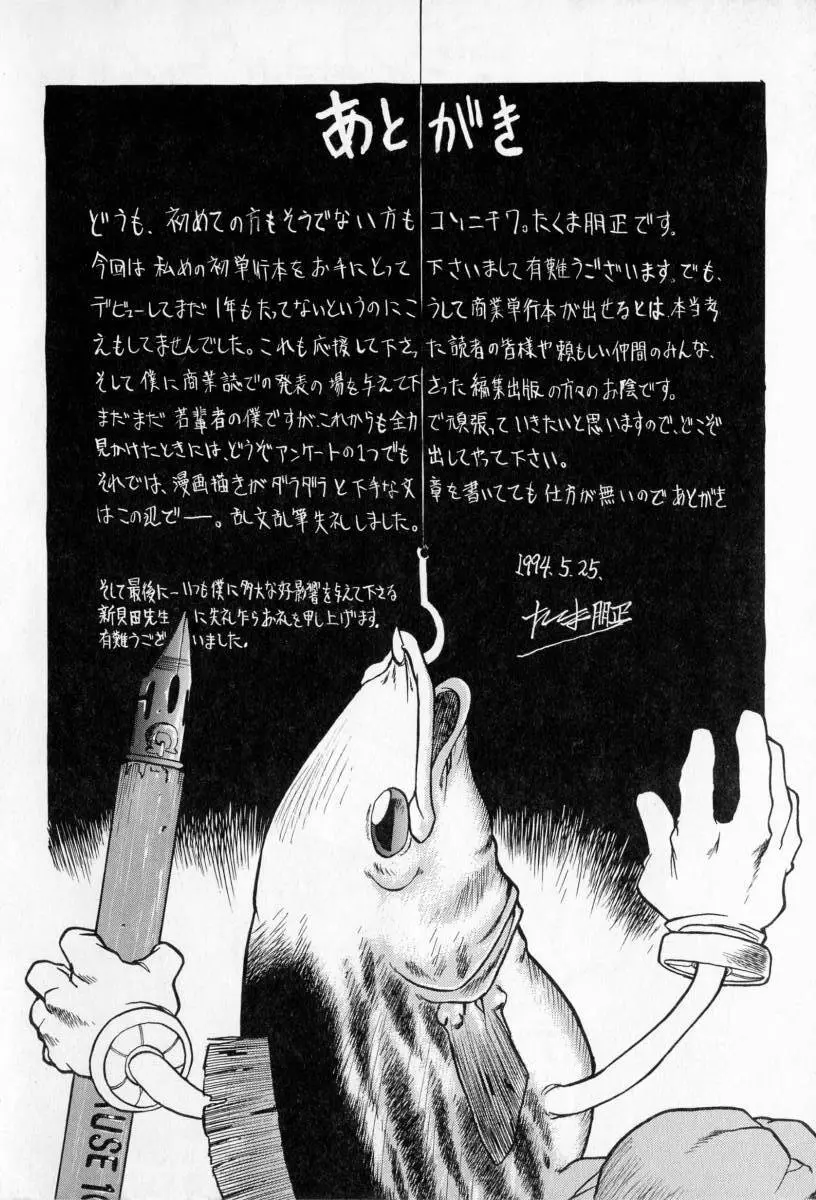 あとがき
どうも、初めての方もそうでない方もコンニチワ。たくま朋正です。
今回は私めの初単行本をお手にとって下さいまして有難うございます。でも、
デビューしてまだ1年もたってないというのにこうして商業単行本が出せるとは、本当考
えもしてませんでした。これも応援して下さった読者の皆様や頼もしい仲間のみんな、
そして僕に商業誌での発表の場を与えて下さった編集出版の方々のお陰です。
まだまだ若輩者の僕ですが、これからも全力で頑張っていきたいと思いますので、どこぞ
見かけたときには、どうぞアンケートの1つでも出してやって下さい。
それでは、漫画描きがダラダラと下手な文章を書いてても仕方が無いのであとがき
はこの辺で――。乱文乱筆失礼しました。
1994.5.25.
たくま朋正
そして最後に―いつも僕に多大な好影響を与えて下さる
新貝田先生に失礼乍らお礼を申し上げます。
有難うございました。
G
USE 10